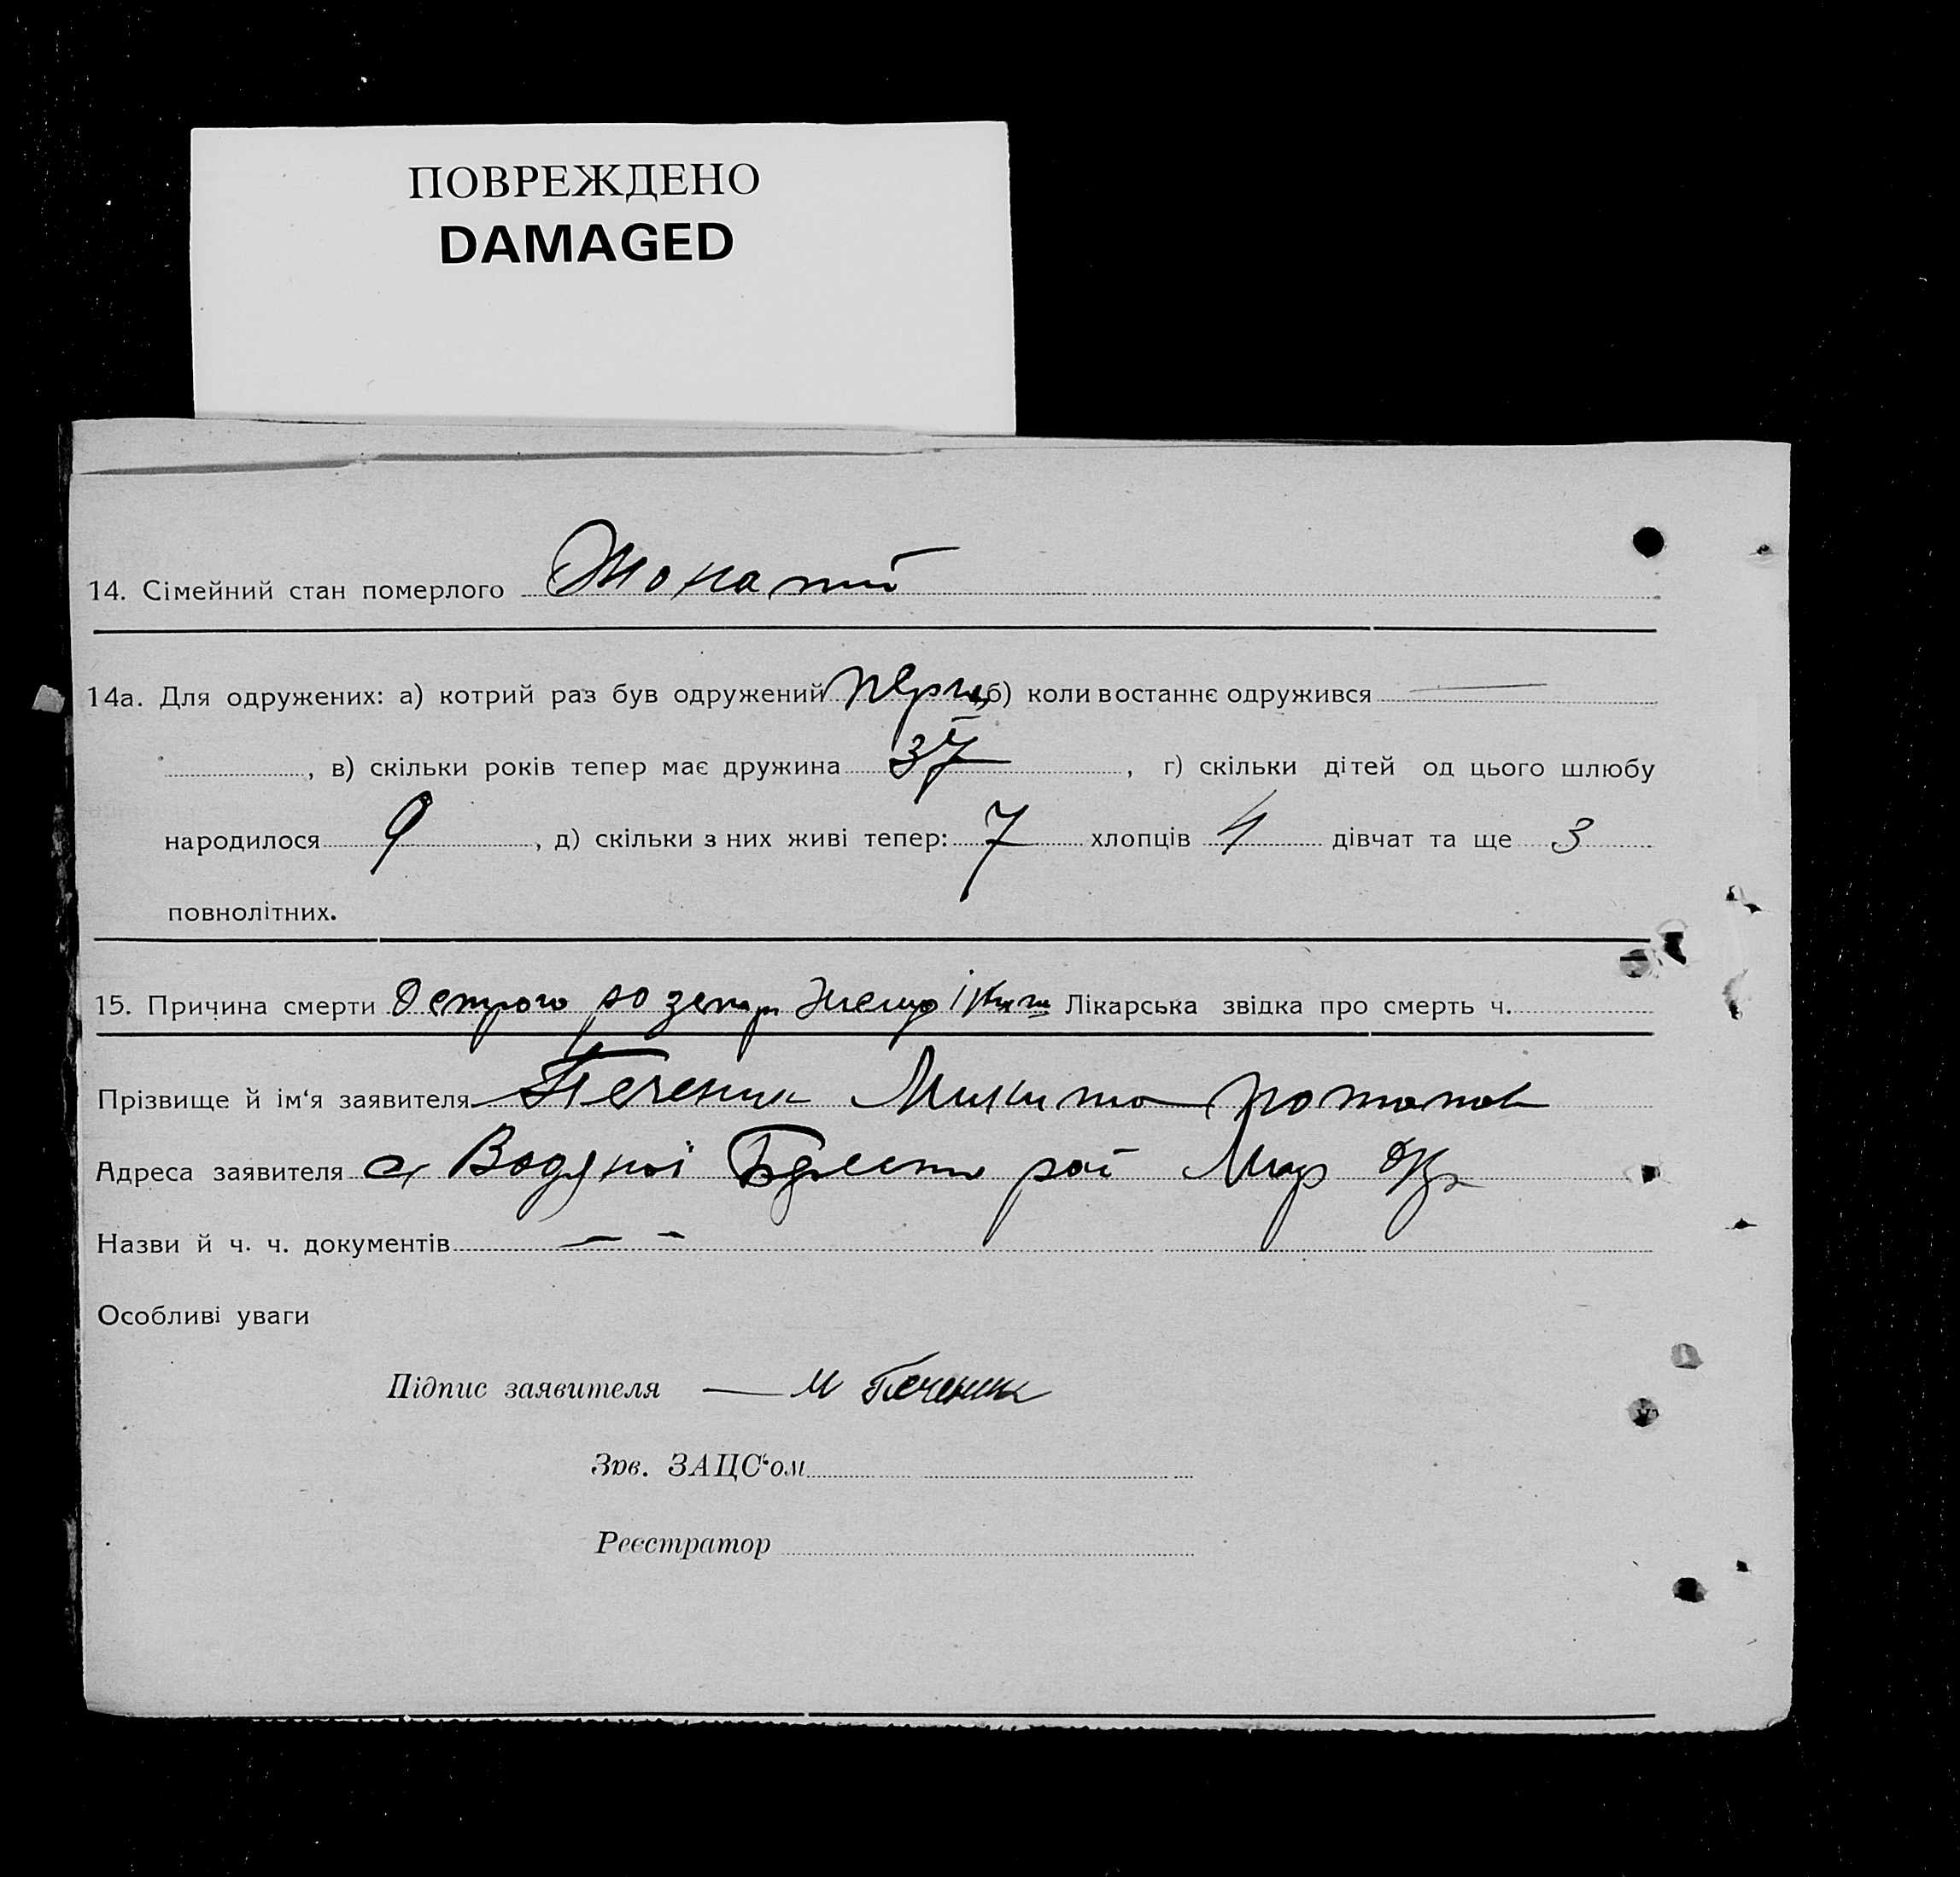 ПОВРЕЖДЕНО
DAMAGED
14. Сімейний стан померлого Жонатий
14а. Для одружених: а) котрий раз був одружений перш б) коли востаннє одружився —
, в) скільки років тепер має дружина 37, г) скільки дітей од цього шлюбу
народилося 9, д) скільки з них живі тепер: 7 хлопців 4 дівчат та ще 3
повнолітних.
15. Причина смерти Лікарська звідка про смерть ч.
Прізвище й ім‘я заявителя Печеник Микита
Адреса заявителя с Водяної рай
Назви й ч. ч. документів — —
Особливі уваги
Підпис заявителя — М Печеник
Зав. ЗАЦС‘ом
Реєстратор